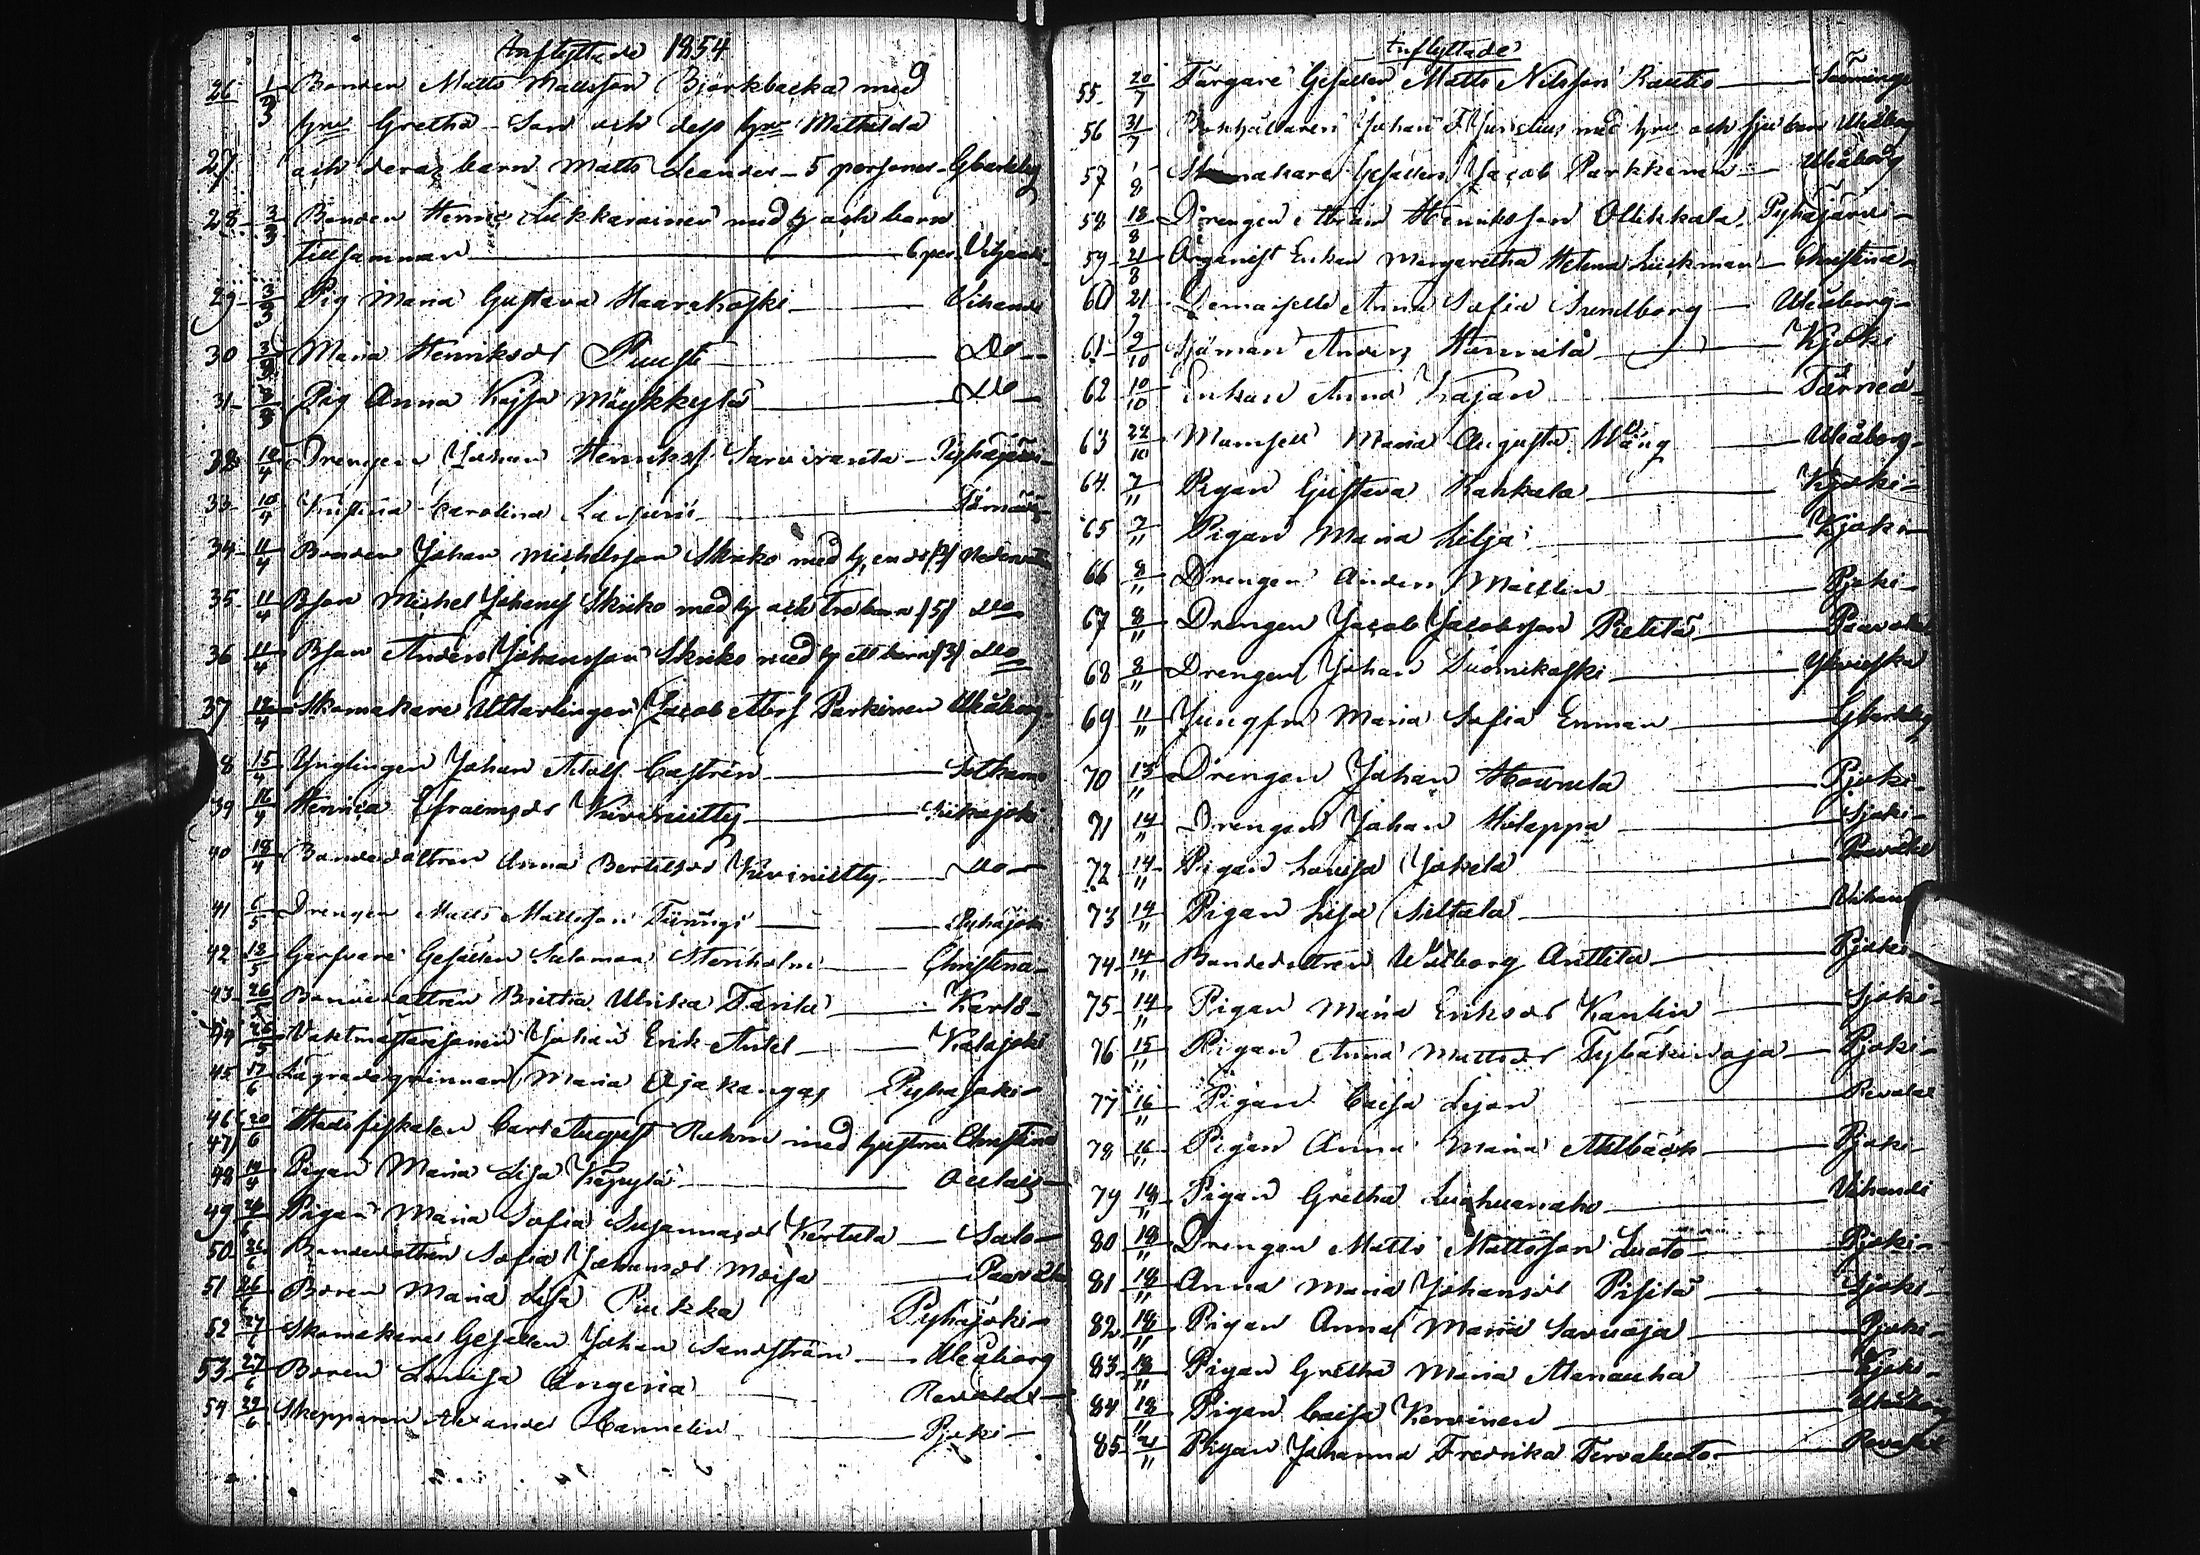 Inflyttade 1854
9
26 1/3 Bonden Matts Mattsson Björkbacka med
hru Gretha Son och dess hru Mathilda
27 och deras barn Matts Leander - 5 personer - Gbarleby
28 3/3 Bonden Henric Lukkarainen med h och barn
tillsamman 6 per. Vihandi
29 3/3 Pig Maria Gustava Haarakoski Vihandi
30 3/3 Maria Henriksdr Ruusti Do
31 3/3 Pig Anna Kajsa Mäykkylä Do
32 10/4 Drengen Johan Henrikss Sarviranta Pyhäjärvi
33 10/4 Kristina Carolina
34 11/4 Bonden Johan Michelsson Skriko med h, en dr (3)
35 11/4 Bson Michel Johanss Skriko med h och tre barn (5) Do
36 11/4 Bson Anders Johansson Skriko med h ett barn (3) Do
37 12/4 Skomakare Utlärlingen Jacob Abrs Parkinen Uleåborg
8 15/4 Ynglingen Johan Adolf Castrén Sotkamo
39 16/4 Henrica Efraimsdr Kiviniitty Siikajoki
40 18/4 Bondedottren Anna Bertilsdr Kiviniitty Do
41 6/5 Drengen Matts Mattsson Pyhäjoki
42 12/5 Garfvare Gesällen Salomon Stenholm Christina
43 26/5 Bondedottren Britha Ulrika Karlö
44 26/5 Vaktmästaresonen Johan Erik Kalajoki
45 17/6 Lägradeqvinnan Maria Ojakangas Pyhäjoki
46 20/6 Stadsfiskalen Carl August Rahm med hustru Christina
47
48 14/4 Pigan Maria Lisa Käpylä Oulais
49 26/6 Pigan Maria Sofia Susannasdr Kertula Salo
50 26/6 Bondedottren Sofia Johansdr Moisa Paavola
51 26/6 Boren Maria Lisa Piukka Pyhäjoki
52 27/6 Skomakare Gesällen Johan Sandström Uleåborg
53 27/6 Boren Lovisa Angeria Revolax
54 29/6 Skepparen Alexander Cannelin Pjoki
Inflyttade
55 20/7 Färgare Gesällen Matts Nilsson Rautio
56 31/7 Bokhållaren Johan F. Junelius med hru och sju barn Uleåborg
57 1/8 Skomakare Gesällen Jacob Parkkinen Uleåborg
58 18/8 Drengen Abram Henriksson Ollikkala Pyhäjärvi
59 21/8 Organist Enkan Margaretha Helena Lückman Christina
60 21 Demoiselle Anna Sofia Sundborg Uleåborg
61 9/10 Sjöman Anders Hannila Kjoki
62 10/10 Enkan Anna Kajan
63 22/10 Mamsell Maria Augusta Wäng Uleåborg
64 7/11 Pigan Gustava Rahkala Kjoki
65 7/11 Pigan Maria Lilja Kjoki
66 8/11 Drengen Anders Mattlin Pjoki
67 8/11 Drengen Jacob Jacobsson Pietilä Paavola
68 8/11 Drengen Johan Suomikoski Ylivieska
69 11/11 Jungfru Maria Sofia Enman Gbarleby
70 13/11 Drengen Johan Hounila Pjoki
71 14/11 Drengen Johan Holappa Sjoki
72 14/11 Pigan Lovisa Jokela Paavola
73 14/11 Pigan Lisa Siltala Vihandi
74 14/11 Bondedottren Walborg Anttila Pjoki
75 14/11 Pigan Maria Eriksdr Kanlin Sjoki
76 15/11 Pigan Anna Mattsdr Pjoki
77 16/11 Pigan Caisa Lejon Revolax
78 16/11 Pigan Anna Maria Ahlbäck Pjoki
79 18/11 Pigan Gretha Luahuanaho Vihandi
80 18/11 Drengen Matts Mattsson Luoto Pjoki
81 18/11 Anna Maria Johansdr Pisilä Sjoki
82 18/11 Pigan Anna Maria Savuoja Pjoki
83 18/11 Pigan Gretha Maria Kjoki
84 18/11 Pigan Caisa Kervinen Uleåborg
85 21/11 Pigan Johanna Fredrika Tervaluoto Revolax